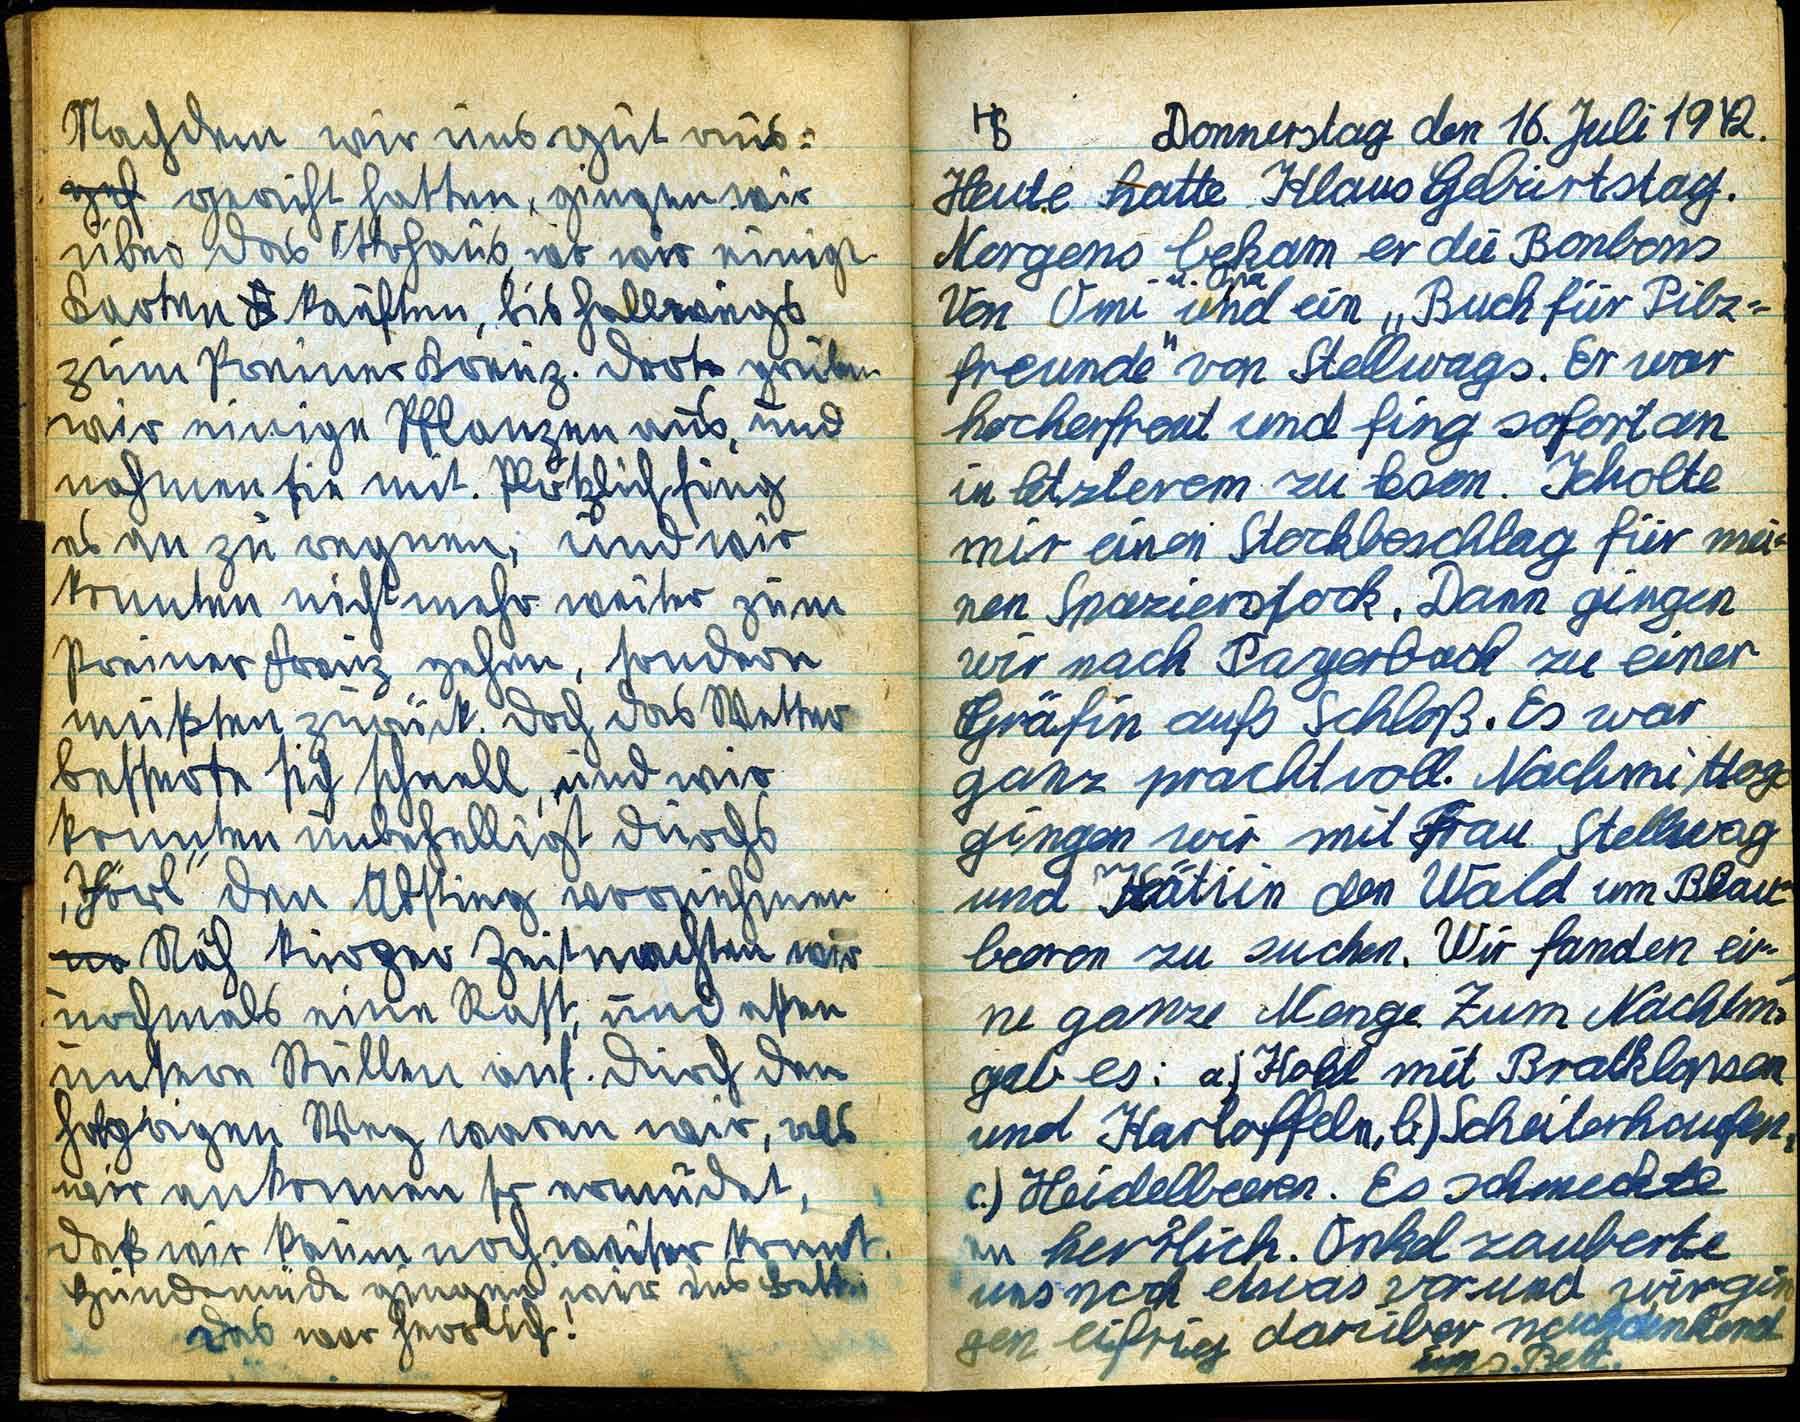 Nachdem wir uns gut aus=
geruht hatten, gingen wir
über das Ottohaus, wo wir einige
Karten kauften, bis halbwegs
zum Preiner Kreuz. Dort gruben
wir einige Pflanzen aus, und
nahmen sie mit. Plötzlich fing
es an zu regnen, und wir
konnten nicht mehr weiter zum
Preiner Kreuz gehen, sondern
mußten zurück. Doch das Wetter
besserte sich schnell, und wir
konnten unbehelligt durchs
„Törl“ den Abstieg vornehmen
Nach kurzer Zeit machten wir
nochmals eine Rast, und assen
unsere Stullen auf. Durch den
Weg waren wir, als
wir ankommen so ermüdet,
daß wir kaum noch weiter konnt.
Hundemüde gingen wir ins Bett.
Das war herrlich!
Donnerstag den 16. Juli 1942.
Heute hatte Klaus Geburtstag.
Morgens bekam er die Bonbons
u. Opa
Von Omi und ein „Buch für Pilz=
freunde" von Stellwags. Er war
hocherfreut und fing sofort an
in letzterem zu lesen. Ich holte
mir einen Stockbeschlag für mei=
nen Spazierstock. Dann gingen
wir nach Payerbach zu einer
Gräfin aufs Schloß. Es war
ganz prachtvoll. Nachmittag
gingen wir mit Frau Stellwag
und Käti in den Wald um Blau=
beeren zu suchen. Wir fanden ei=
ne ganze Menge Zum Nachtm.
gab es: a.) Kohl mit Bratklopsen
und Kartoffeln, b.) Scheiterhaufen,
c.) Heidelbeeren. Es schmeckte
herrlich. Onkel zauberte
uns noch etwas vor und wir gin
gen eifrig darüber nachdenkend
ins Bett.